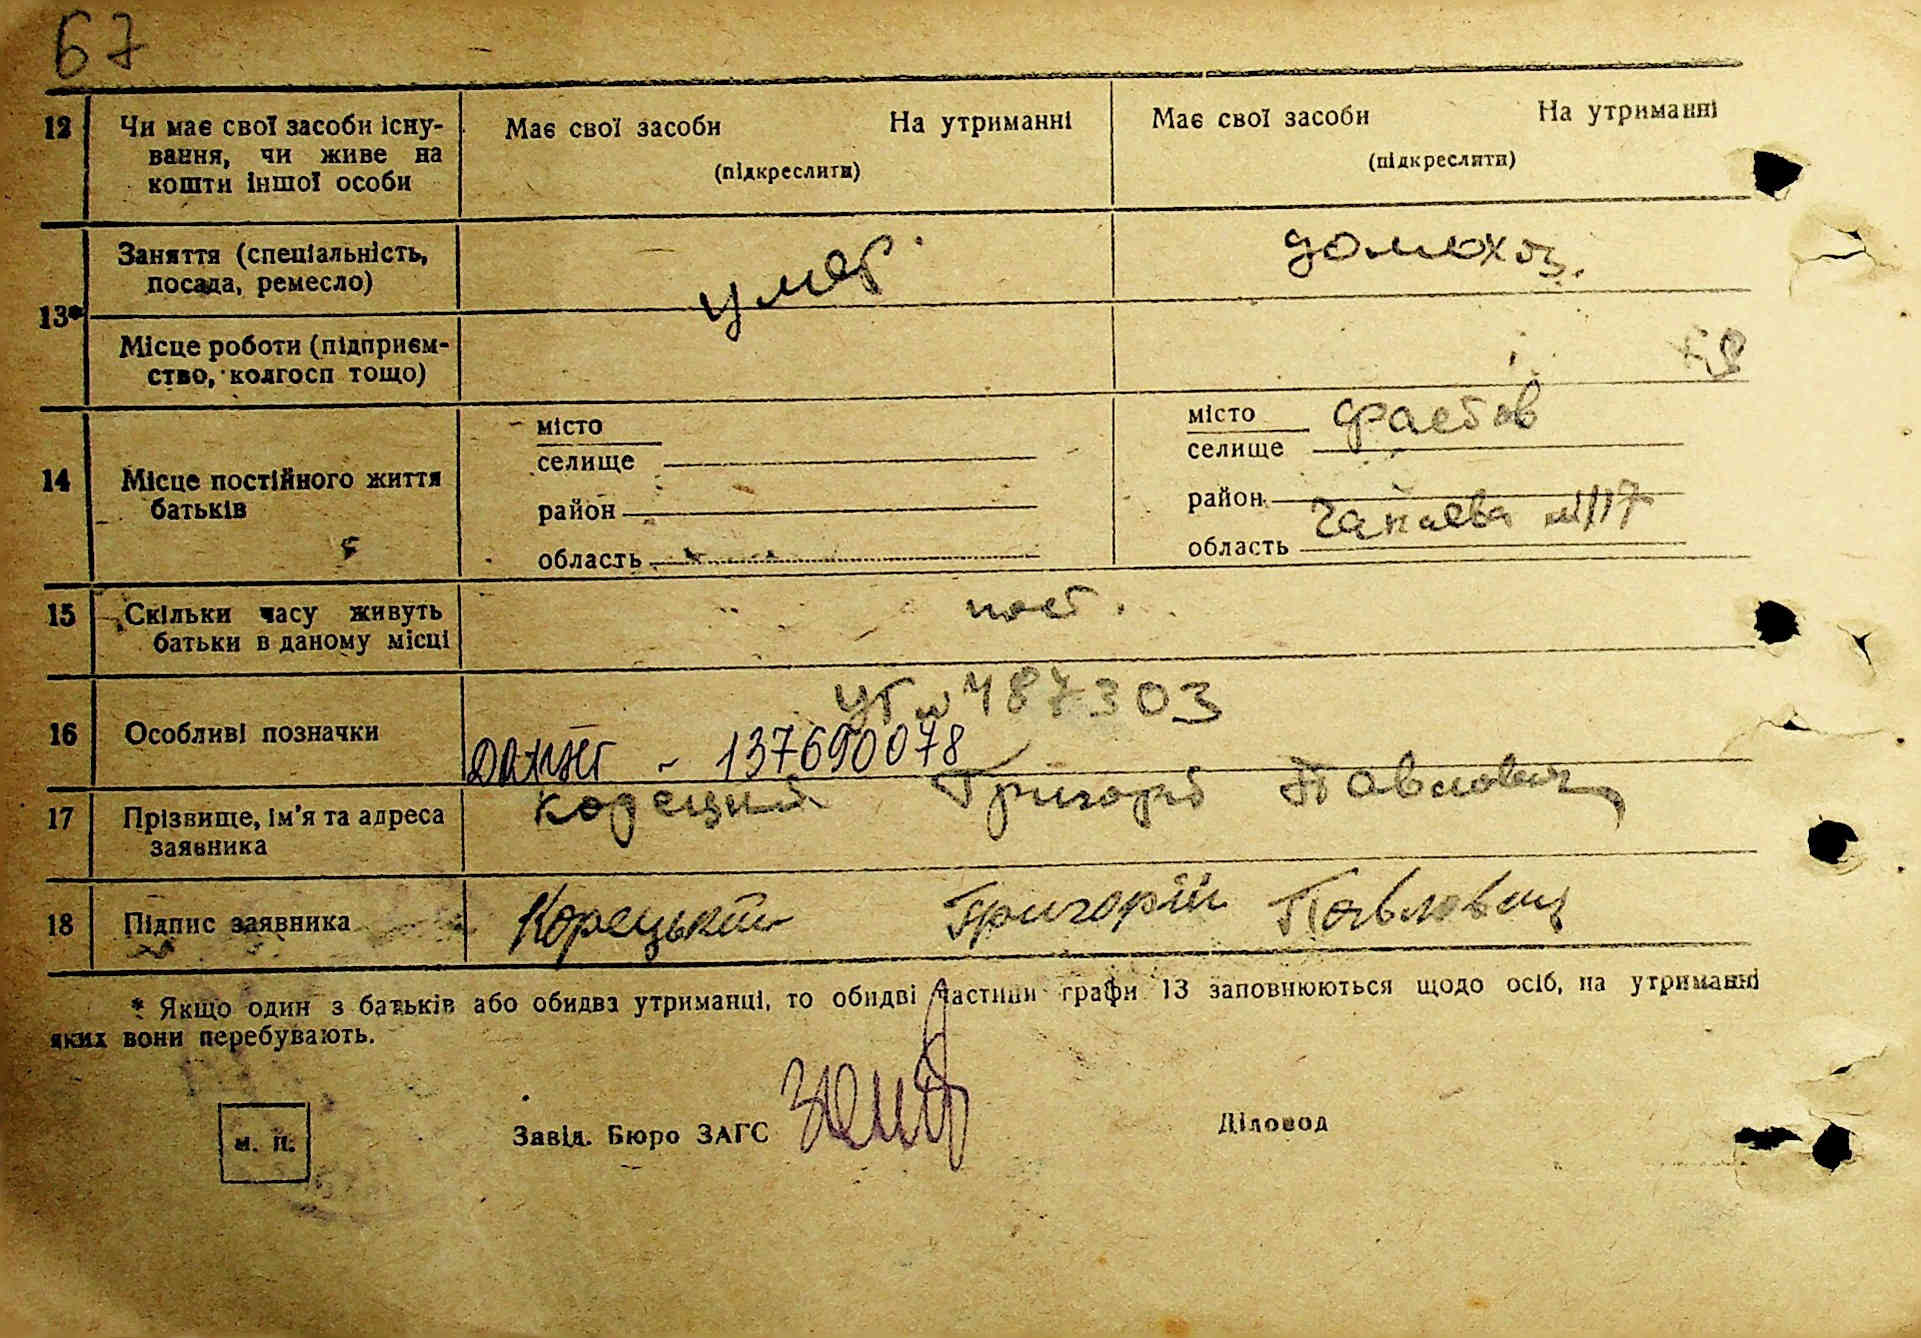 67
12 Чи має свої засоби існу-
вання, чи живе на
кошти іншої особи
Має свої засоби На утриманні
(підкреслити)
Має свої засоби На утриманні
(підкреслити)
13* Заняття (спеціальність,
посада, ремесло)
умер
домохоз.
Місце роботи (підприєм-
ство, колгосп тощо)
14 Місце постійного життя
батьків
місто
селище
район
область
місто Фастов
селище
район
Чапаева 117
область
15 Скільки часу живуть
батьки в даному місці
пост.
16 Особливі позначки
487303
- 137690078
17 Прізвище, ім'я та адреса
заявника
Корецкий Григорій Павлович
18 Підпис заявника
Корецький Григорій Павлович
* Якщо один з батьків або обидва утриманці, то обидві частини графи 13 заповнюються щодо осіб, на утриманні
яких вони перебувають.
м. п.
Завід. Бюро ЗАГС
Діловод